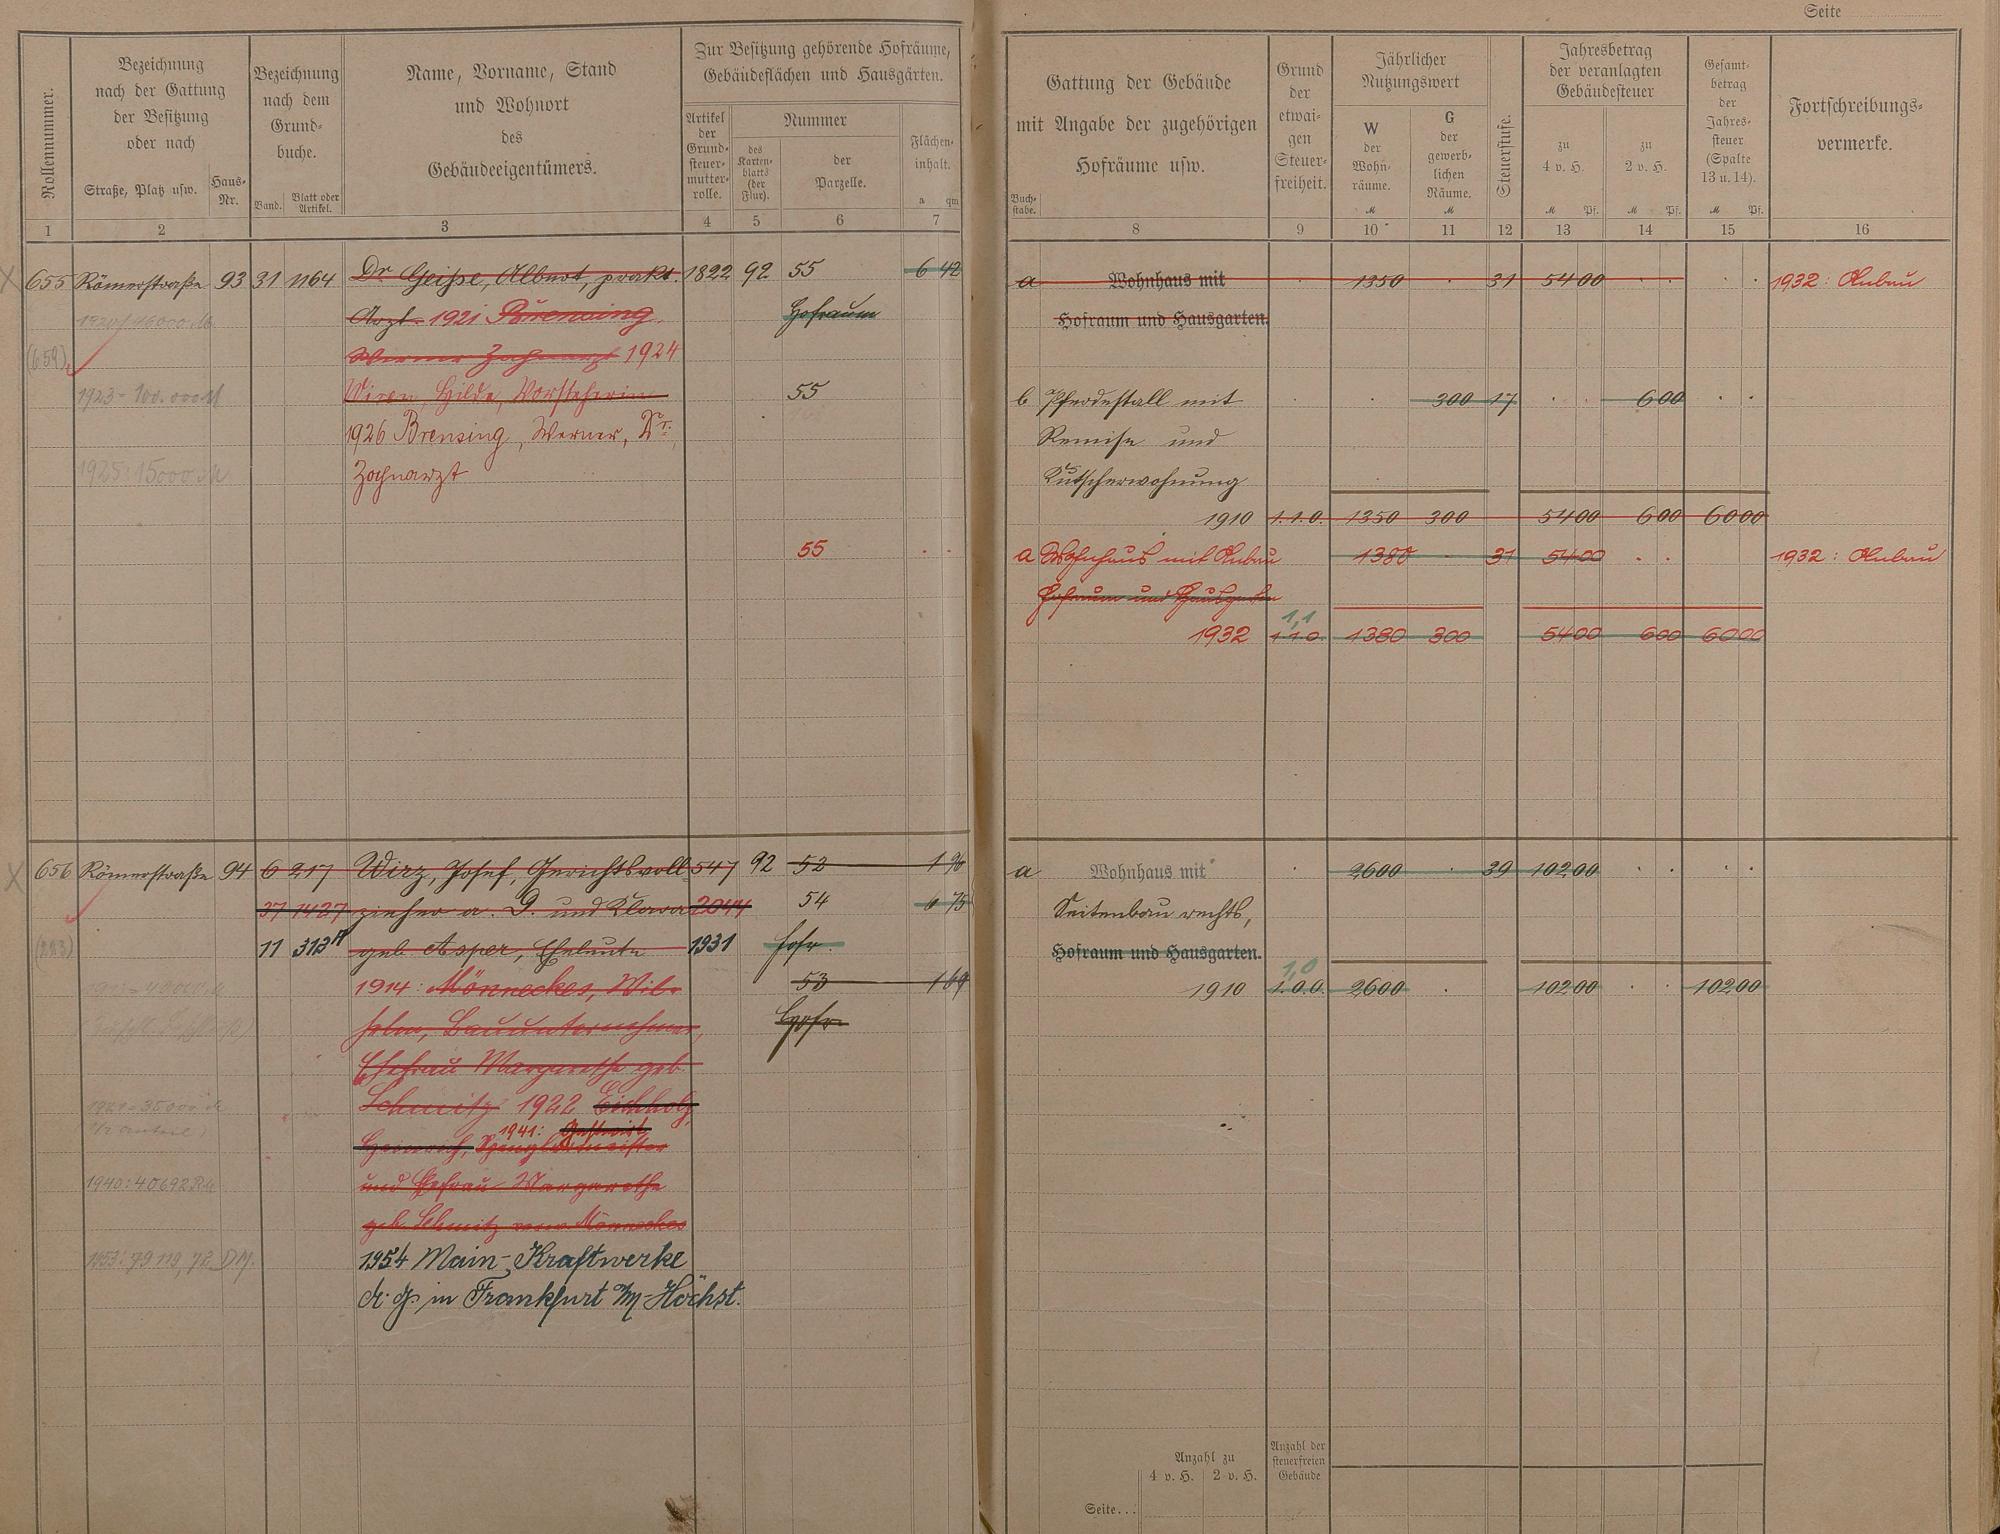 Seite
Rollennummer.
Bezeichnung
nach der Gattung
der Besitzung
oder nach
Straße, Platz usw.
Haus-
Nr.
Bezeichnung
nach dem
Grund-
buche.
Band.
Blatt oder
Artikel.
Name, Vorname, Stand
und Wohnort
des
Gebäudeeigentümers.
Zur Besitzung gehörende Hofräume,
Gebäudeflächen und Hausgärten.
Artikel
der
Grund-
steuer-
mutter-
rolle.
Nummer
des
Karten-
blatts
(der
Flur).
der
Parzelle.
Flächen-
inhalt.
a qm
1 2 3 4 5 6 7
Gattung der Gebäude
mit Angabe der zugehörigen
Hofräume usw.
Buch-
stabe.
Grund
der
etwai-
gen
Steuer-
freiheit.
Jährlicher
Nutzungswert
W
der
Wohn-
räume.
M
G
der
gewerb-
lichen
Räume.
M
Steuerstufe.
Jahresbetrag
der veranlagten
Gebäudesteuer
zu
4 v. H.
M Pf.
zu
2 v. H.
M Pf.
Gesamt-
betrag
der
Jahres-
steuer
(Spalte
13 u. 14).
M Pf.
Fortschreibungs-
vermerke.
8 9 10 11 12 13 14 15 16
655 Römerstraße 93 31 1164 Dr Geiße, Albert, prakt. 1822 92 55 6 42
Arzt 1921 Brensing
Hofraum
Werner Zahnarzt 1924
(659)
1923 - 100.000 M
Hilde, Vorsteherin
55
1926 Brensing, Werner, Dr.
Zahnarzt
1925: 15000 M
55
a Wohnhaus mit 1350 31 54 00 1932: Anbau
Hofraum und Hausgarten.
b Pferdestall mit 300 17 6 00
Remise und
Kutscherwohnung
1910 1.1.0. 1350 300 54 00 6 00 60 00
a Wohnhaus mit Anbau 1380 31 54 00 1932: Anbau
Hofraum und Hausgarten
1,1
1932 1.1.0. 1380 300 54 00 6 00 60 00
656 Römerstraße 94 6 217 Wirz, Josef, Gerichtsvoll 547 92 53 1 96
37 1427 zieher a. D. und Klara 2044 54 6 75
11 313A geb. Asper, Eheleute 1931 Hofr.
1914: Mönneckes, Wil- 53 1 69
helm, Bauunternehmer, Hofr.
Ehefrau Margarethe geb.
Schmitz 1922 Eichholz,
1941: Gastwirt
Heinrich, Spenglermeister
und Ehefrau Margarethe
geb. Schmitz verw. Mönneckes
1921 = 35000 M
1940: 40692 RM
1953: 79 119, 72 DM.
1954 Main-Kraftwerke
A. G. in Frankfurt a/M-Höchst.
a Wohnhaus mit 2600 39 102 00
Seitenbau rechts,
Hofraum und Hausgarten.
1,0
1910 1.0.0. 2600 102 00 102 00
Anzahl zu
4 v. H. 2 v. H.
Anzahl der
steuerfreien
Gebäude
Seite...